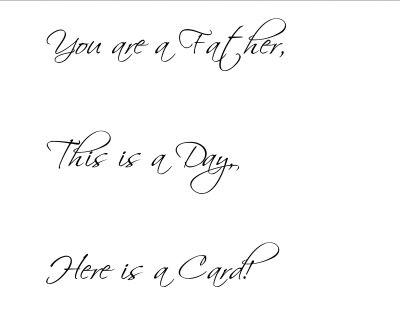 You are a Father,
This is a Day,
Here is a Card!